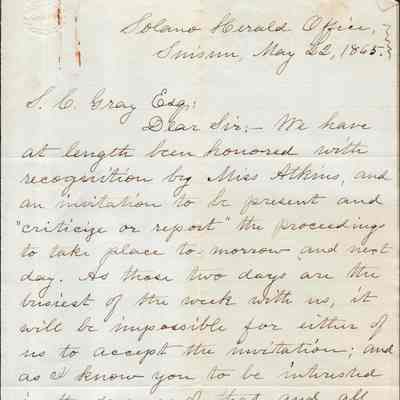 Solano Herald Office,
Suisun, May 22, 1865.
S. C. Gray Esq;
Dear Sir;— We have
at length been honored with
recognition by Miss Atkins, and
an invitation to be present and
"criticize or report" the proceedings
to take place to-morrow and next
day. As those two days are the
busiest of the week with us, it
will be impossible for either of
us to accept the invitation; and
as I know you to be interested
and all